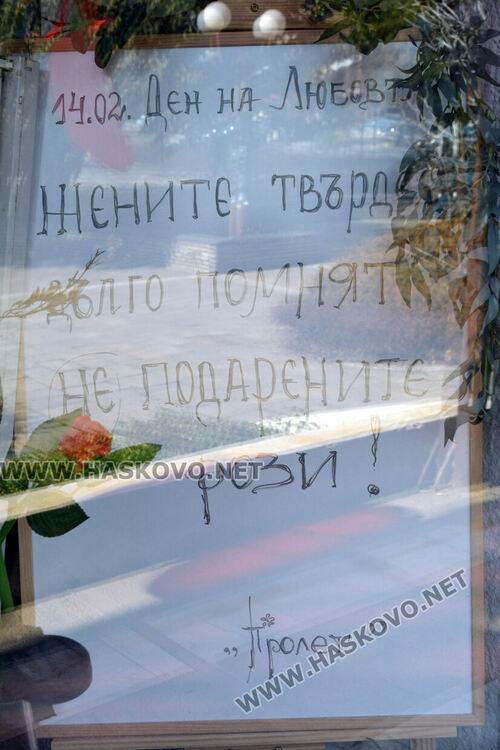 14.02. Ден на Любовта
Жените твърде
дълго помнят
не подарените
рози!
WWW.HASKOVO.NET
„Пролет“
WWW.HASKOVO.NET